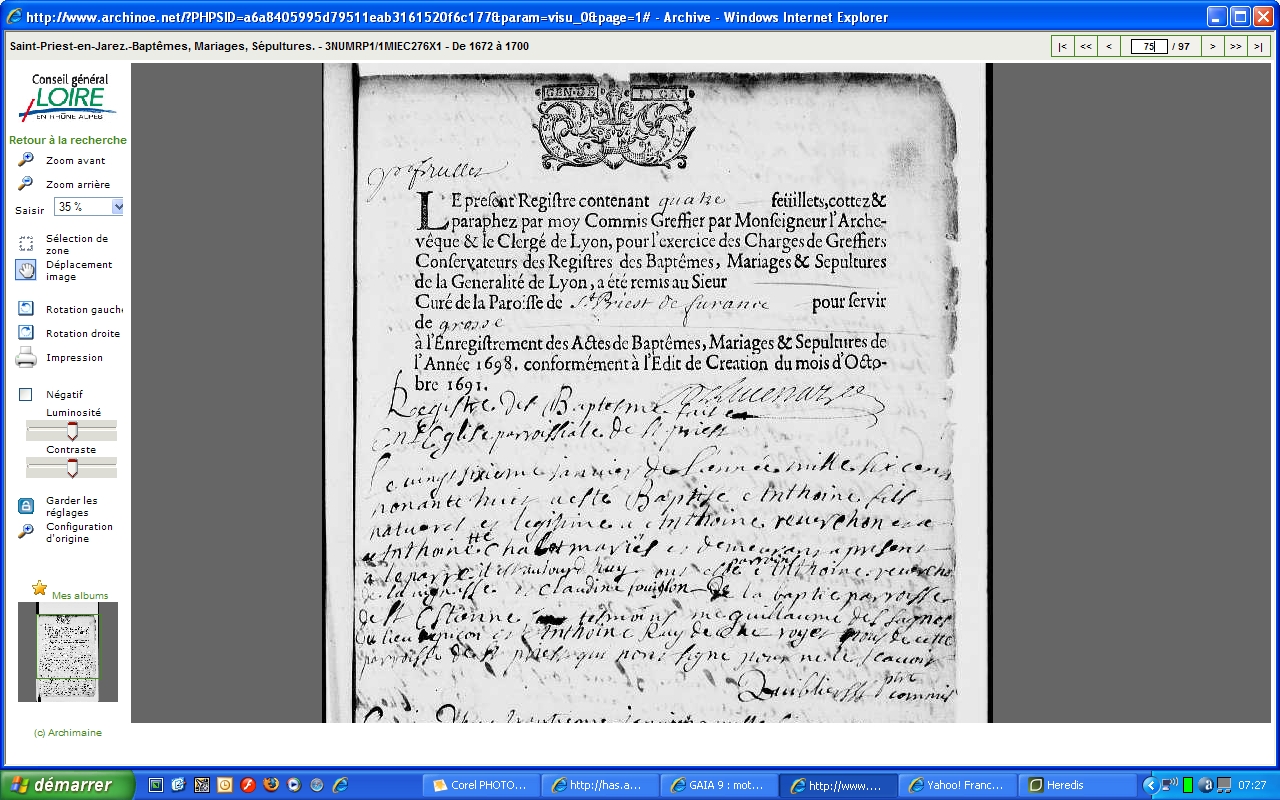 http://www.archinoe.net/?PHPSID=a6a8405995d79511eab3161520f6c177&param=visu_0&page=1# - Archive - Windows Internet Explorer
Saint-Priest-en-Jarez.-Baptêmes, Mariages, Sépultures. - 3NUMRP1/1MIEC276X1 - De 1672 à 1700
|< << < 75 / 97 > >> >|
Conseil général
LOIRE
EN RHÔNE ALPES
Retour à la recherche
Zoom avant
Zoom arrière
Saisir 35 %
Sélection de
zone
Déplacement
image
Rotation gauche
Rotation droite
Impression
Négatif
Luminosité
Contraste
Garder les
réglages
Configuration
d'origine
Mes albums
(c) Archimaine
GEN·DE LYON
LE present Registre contenant quatre feüillets, cottez &
paraphez par moy Commis Greffier par Monseigneur l'Arche-
vêque & le Clergé de Lyon, pour l'exercice des Charges de Greffiers
Conservateurs des Registres des Baptêmes, Mariages & Sepultures
de la Generalité de Lyon, a été remis au Sieur
Curé de la Paroisse de St Priest de furance pour servir
de grosse
à l'Enregistrement des Actes de Baptêmes, Mariages & Sepultures de
l'Année 1698. conformément à l'Edit de Creation du mois d'Octo-
bre 1691.
Registre des Baptesme fais
en l'Eglise parroissiale de st priest
Le vingt sixieme janvier de l'année mille six cens
nonante huict a esté Baptise Anthoine fils
naturel et legitime a Anthoine reverchon et a
Anthoinette mariés et demeurans a present
parrain Anthoine
et claudine de la parroisse
de st Estienne tesmoins me guillaume des
et Anthoine de cette
parroisse de st priest qui n'ont signé pour ne le scavoir
ptre
commis
démarrer
Corel PHOTO...
http://has.a...
GAIA 9 : mot...
http://www....
Yahoo! Franc...
Heredis
07:27